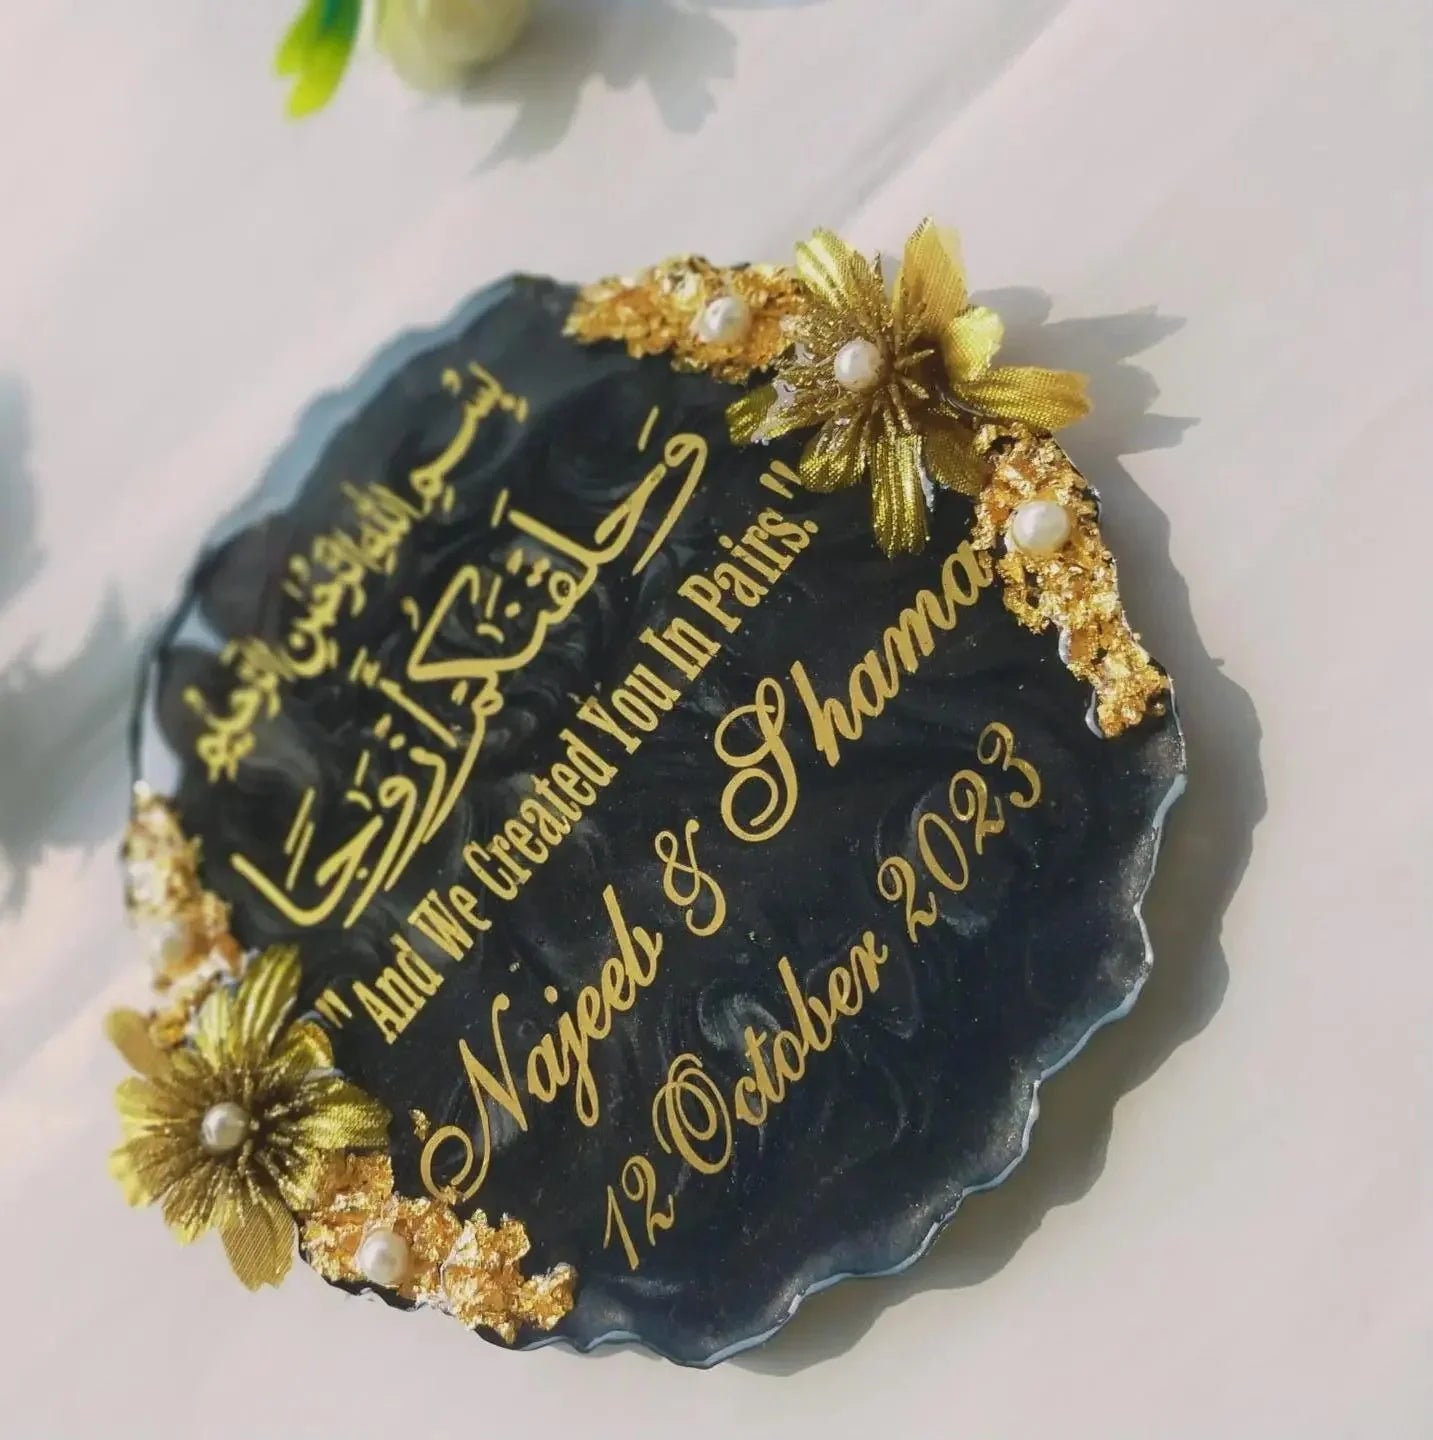 بِسْمِ اللهِ الرَّحْمٰنِ الرَّحِيْمِ
وَخَلَقْنٰكُمْ اَزْوَاجًا
"And We Created You In Pairs."
Najeeb & Shama
12 October 2023